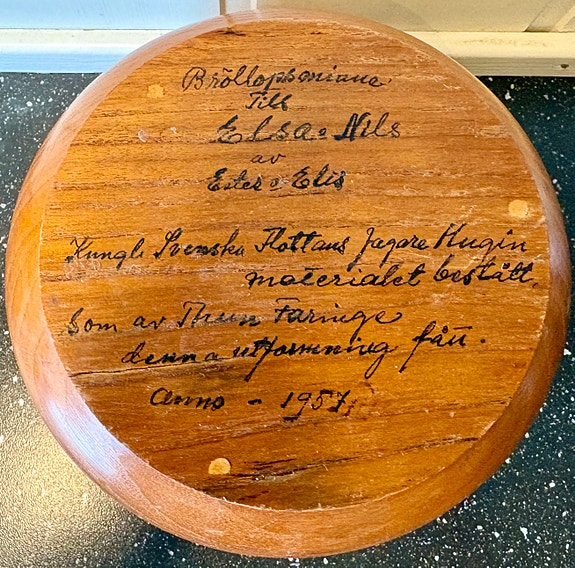 Bröllopsminne
Till
Elsa o Nils
av
Ester o Elis
Kungl. Svenska Flottans Jagare Hugin
materialet bestått,
Som av Thure Faringe
denna utformning fått.
Anno - 1957,